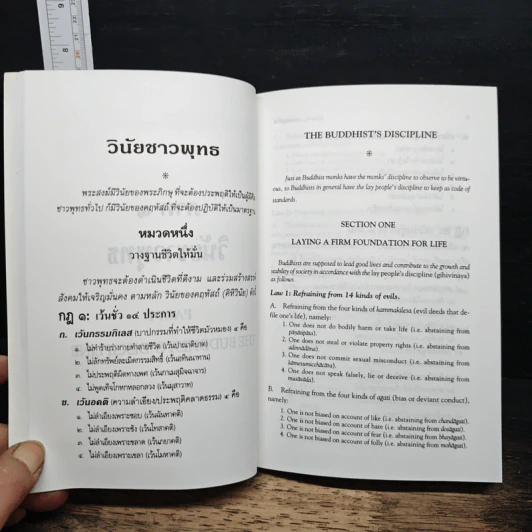 วินัยชาวพุทธ
พระสงฆ์มีวินัยของพระภิกษุ ที่จะต้องประพฤติให้เป็นผู้มีศีล
ชาวพุทธทั่วไป ก็มีวินัยของคฤหัสถ์ ที่จะต้องปฏิบัติให้เป็นมาตรฐาน
หมวดหนึ่ง
วางฐานชีวิตให้มั่น
ชาวพุทธจะต้องดำเนินชีวิตที่ดีงาม และร่วมสร้างสรรค์
สังคมให้เจริญมั่นคง ตามหลัก วินัยของคฤหัสถ์ (คิหิวินัย)
กฎ ๑: เว้นชั่ว ๑๔ ประการ
ก. เว้นกรรมกิเลส (บาปกรรมที่ทำให้ชีวิตมัวหมอง) ๔ คือ
๑. ไม่ทำร้ายร่างกายทำลายชีวิต (เว้นปาณาติบาต)
๒. ไม่ลักทรัพย์ละเมิดกรรมสิทธิ์ (เว้นอทินนาทาน)
๓. ไม่ประพฤติผิดทางเพศ (เว้นกาเมสุมิจฉาจาร)
๔. ไม่พูดเท็จโกหกหลอกลวง (เว้นมุสาวาท)
ข. เว้นอคติ (ความลำเอียง/ประพฤติคลาดธรรม) ๔ คือ
๑. ไม่ลำเอียงเพราะชอบ (เว้นฉันทาคติ)
๒. ไม่ลำเอียงเพราะชัง (เว้นโทสาคติ)
๓. ไม่ลำเอียงเพราะขลาด (เว้นภยาคติ)
๔. ไม่ลำเอียงเพราะเขลา (เว้นโมหาคติ)
THE BUDDHIST'S DISCIPLINE
Just as Buddhist monks have the monks' discipline to observe to be virtu-
ous, so Buddhists in general have the lay people's discipline to keep as code of
standards.
SECTION ONE
LAYING A FIRM FOUNDATION FOR LIFE
Buddhists are supposed to lead good lives and contribute to the growth and
stability of society in accordance with the lay people's discipline (gihivinaya)
as follows.
Law 1: Refraining from 14 kinds of evils.
A. Refraining from the four kinds of kammakilesa (evil deeds that de-
file one's life), namely:
1. One does not do bodily harm or take life (i.e. abstaining from
pāṇātipāta).
2. One does not steal or violate property rights (i.e. abstaining from
adinnādāna).
3. One does not commit sexual misconduct (i.e. abstaining from
kāmesumicchācāra).
4. One does not speak falsely, lie or deceive (i.e. abstaining from
musāvāda).
B. Refraining from the four kinds of agati (bias or deviant conduct),
namely:
1. One is not biased on account of like (i.e. abstaining from chandāgati).
2. One is not biased on account of hate (i.e. abstaining from dosāgati).
3. One is not biased on account of fear (i.e. abstaining from bhayāgati).
4. One is not biased on account of folly (i.e. abstaining from mohāgati).
8
9